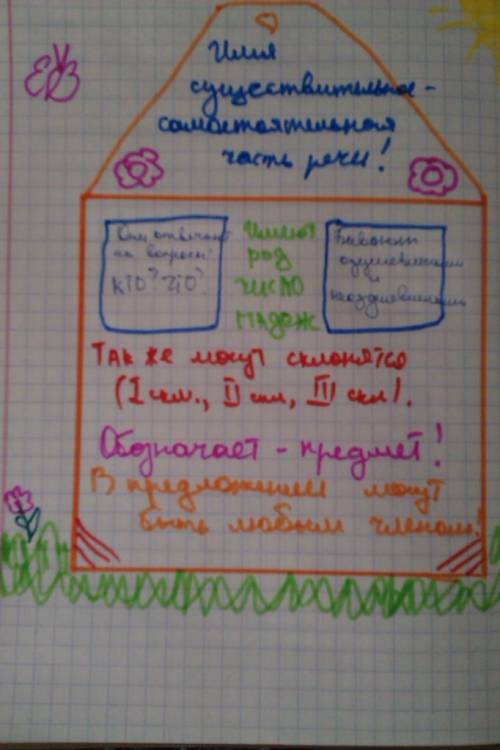 Имя
существительное -
самостоятельная
часть речи!
Они отвечают
на вопросы:
КТО? ЧТО?
Имеют
род
число
падеж
Бывают
одушевленными
и
неодушевленными
Так же могут склонятся
(I скл., II скл, III скл).
Обозначает - предмет!
В предложении могут
быть любым членом!